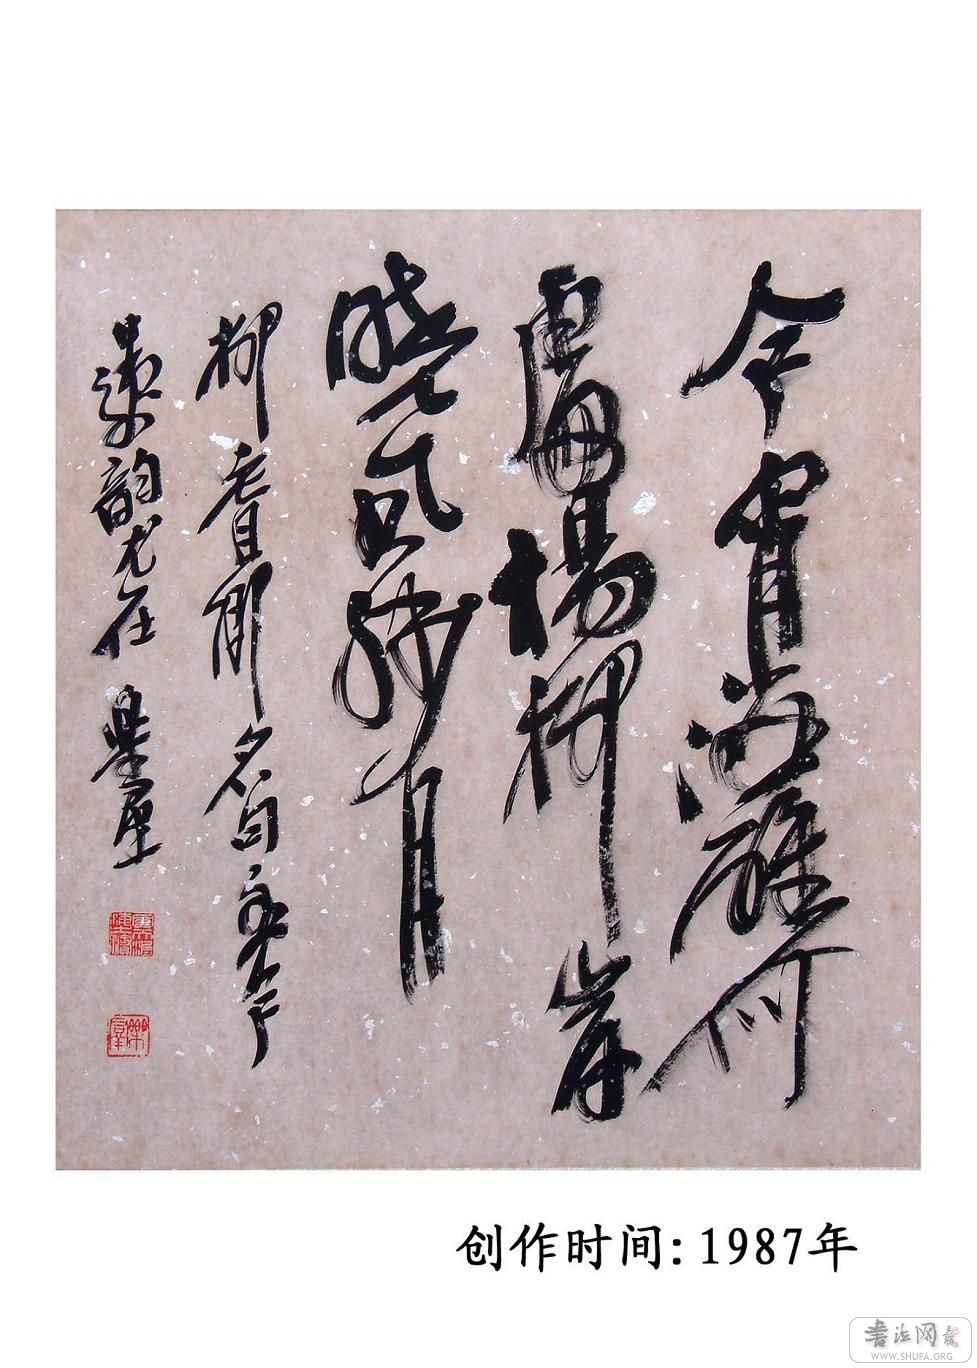 今宵酒醒何
處楊柳岸
曉風殘月
柳耆卿名句
遺韵尤在
创作时间:1987年
书法网
WWW.SHUFA.ORG